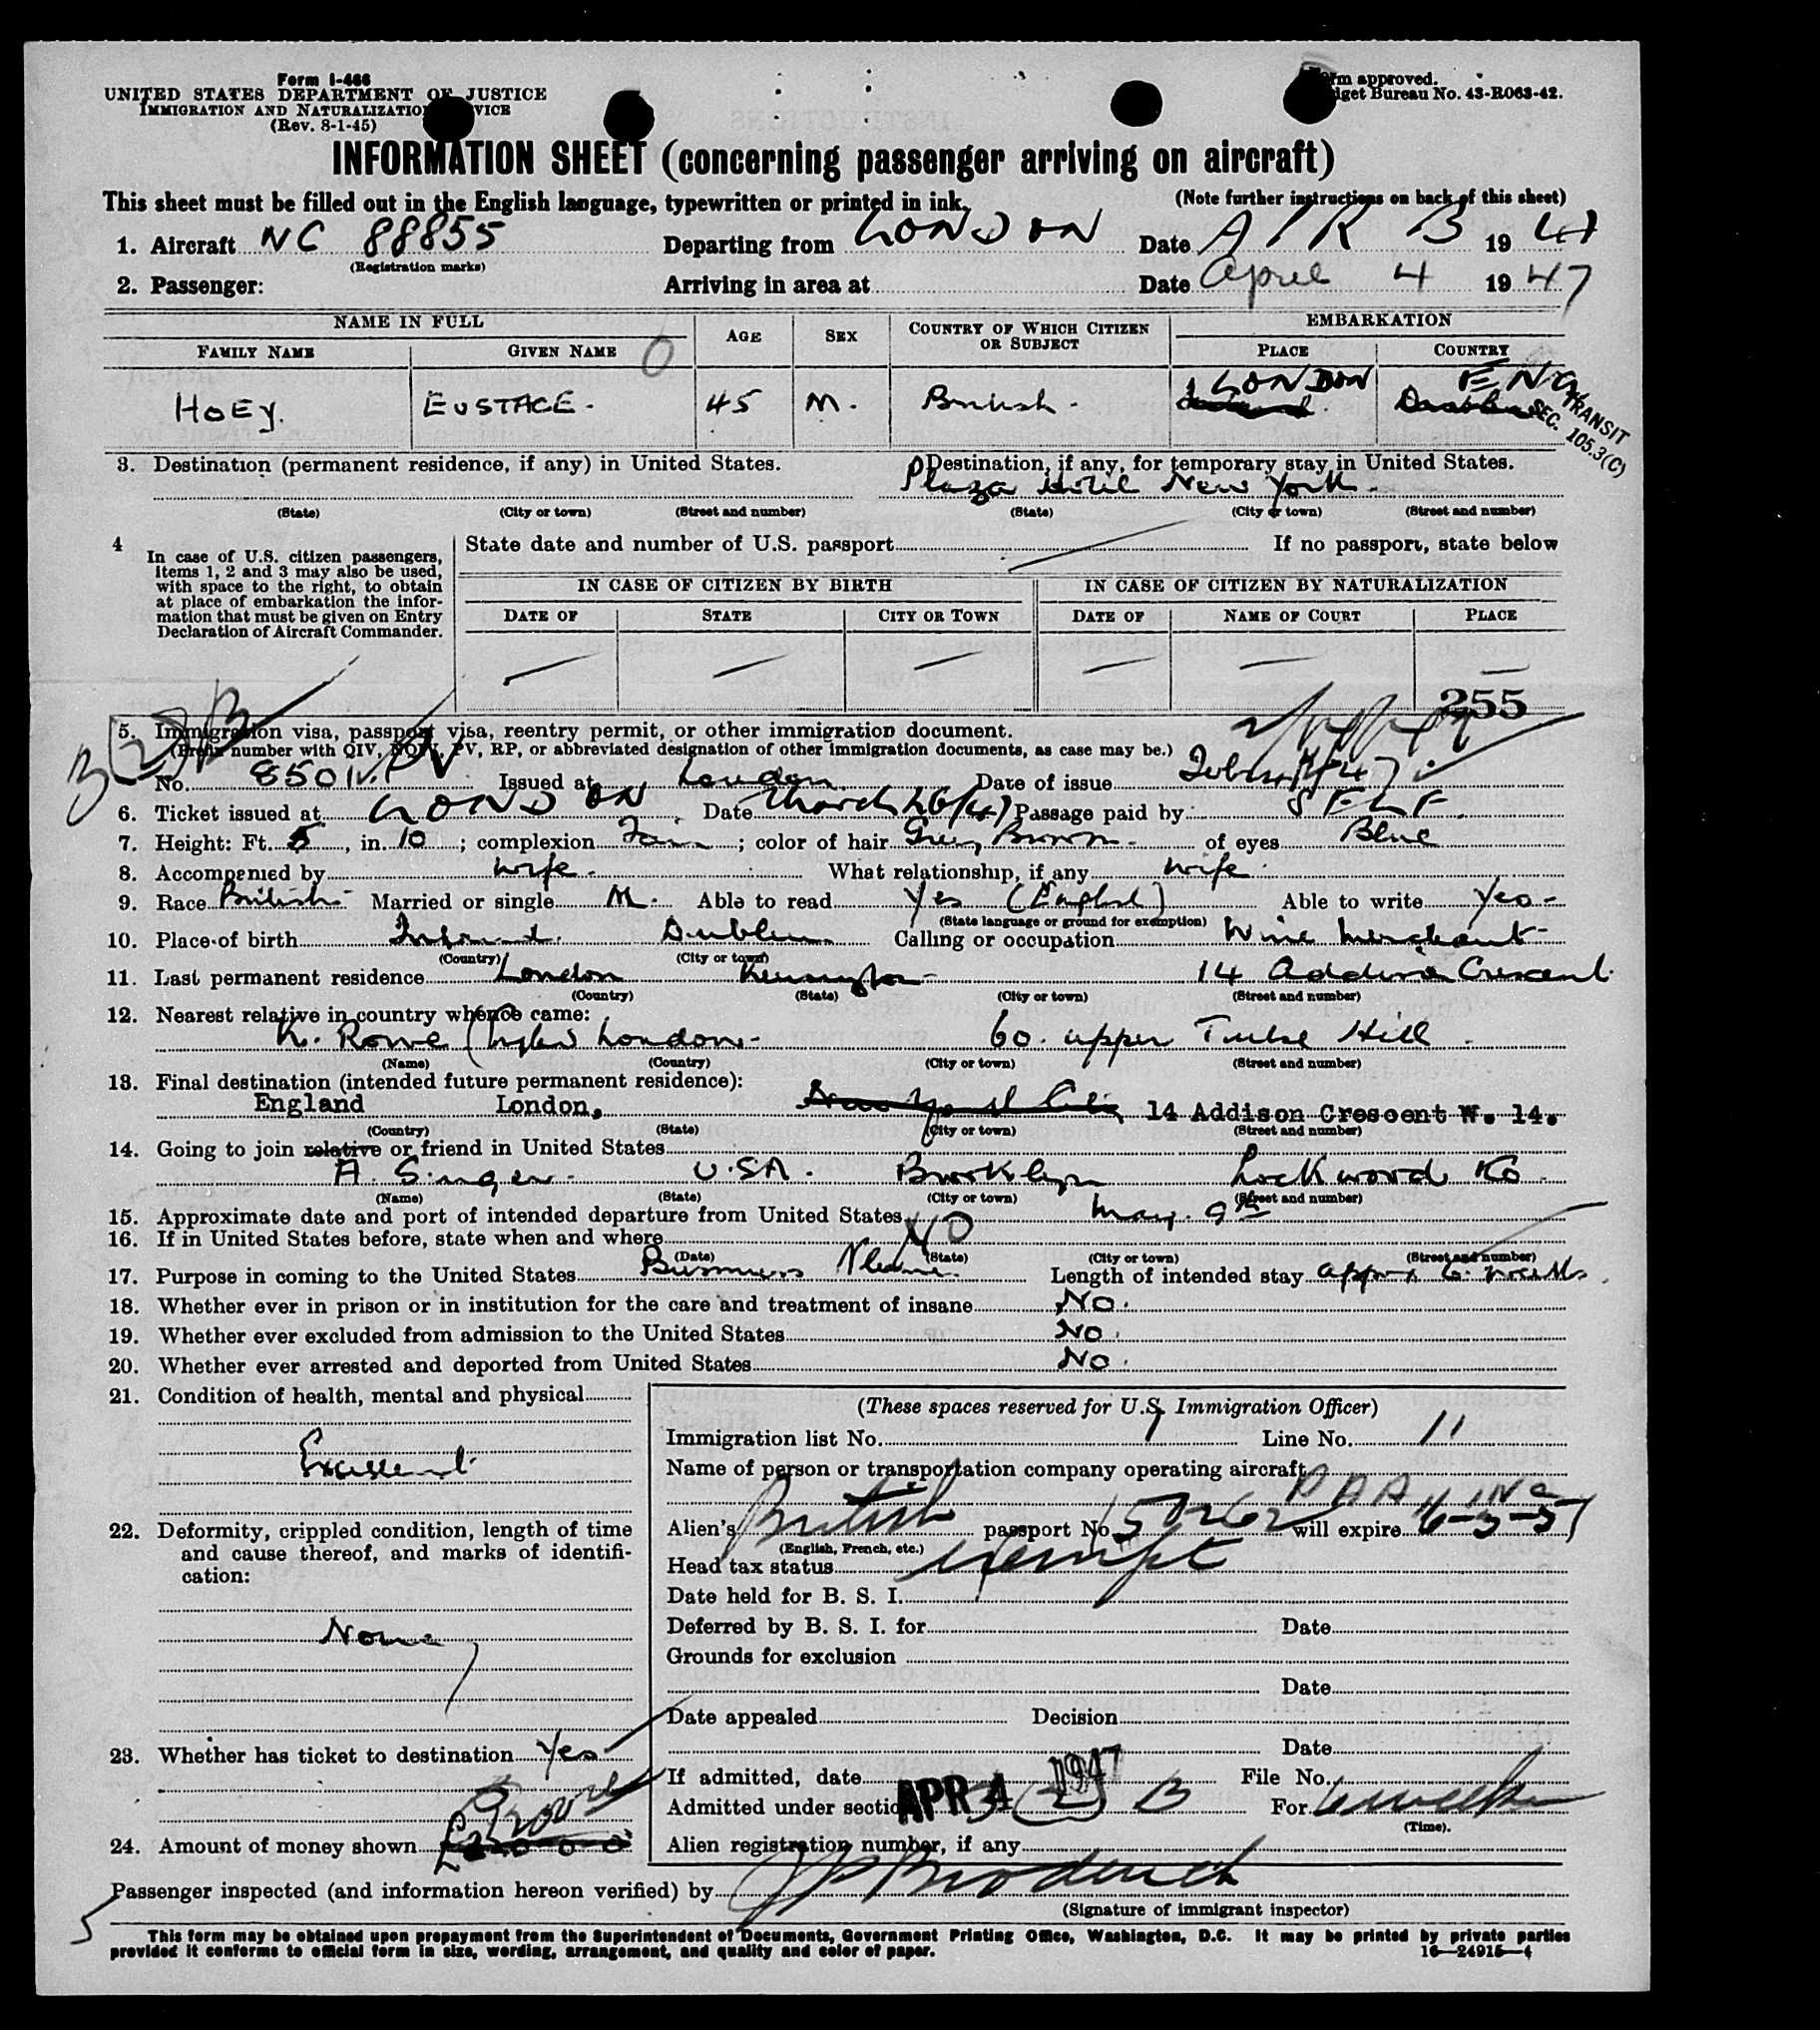 Form I-466
UNITED STATES DEPARTMENT OF JUSTICE
IMMIGRATION AND NATURALIZATION SERVICE
(Rev. 8-1-45)
Form approved.
Budget Bureau No. 43-R063-42.
INFORMATION SHEET (concerning passenger arriving on aircraft)
This sheet must be filled out in the English language, typewritten or printed in ink.
(Note further instructions on back of this sheet)
1. Aircraft NC 88855 Departing from LONDON Date APR 3 19 47
(Registration marks)
2. Passenger: Arriving in area at Date April 4 19 47
NAME IN FULL AGE SEX COUNTRY OF WHICH CITIZEN OR SUBJECT EMBARKATION
FAMILY NAME GIVEN NAME PLACE COUNTRY
HOEY. EUSTACE. 45 M. British. LONDON ENG
TRANSIT
SEC. 105.3(C)
3. Destination (permanent residence, if any) in United States. Destination, if any, for temporary stay in United States.
Plaza Hotel New York.
(State) (City or town) (Street and number) (State) (City or town) (Street and number)
4 In case of U.S. citizen passengers, items 1, 2 and 3 may also be used, with space to the right, to obtain at place of embarkation the information that must be given on Entry Declaration of Aircraft Commander.
State date and number of U.S. passport If no passport, state below
IN CASE OF CITIZEN BY BIRTH IN CASE OF CITIZEN BY NATURALIZATION
DATE OF STATE CITY OR TOWN DATE OF NAME OF COURT PLACE
255
5. Immigration visa, passport visa, reentry permit, or other immigration document.
(Prefix number with QIV, NQIV, PV, RP, or abbreviated designation of other immigration documents, as case may be.)
No. 8501 PV Issued at London Date of issue
6. Ticket issued at LONDON Date March 26/47 Passage paid by: SELF.
7. Height: Ft. 5, in. 10; complexion Fair; color of hair Grey Brown of eyes Blue
8. Accompanied by wife. What relationship, if any wife.
9. Race British Married or single M. Able to read Yes (English) Able to write Yes
(State language or ground for exemption)
10. Place of birth Ireland. Dublin Calling or occupation Wine Merchant
(Country) (City or town)
11. Last permanent residence London Kensington 14 Addison Crescent.
(Country) (State) (City or town) (Street and number)
12. Nearest relative in country whence came:
K. Rowe London. 60. upper Tulse Hill.
(Name) (Country) (City or town) (Street and number)
13. Final destination (intended future permanent residence):
England London, New York City 14 Addison Crescent W. 14.
(Country) (State) (City or town) (Street and number)
14. Going to join relative or friend in United States
A. Singer. U.S.A. Brooklyn Lockwood Co
(Name) (State) (City or town) (Street and number)
15. Approximate date and port of intended departure from United States May. 9th
16. If in United States before, state when and where NO
(Date) (State) (City or town) (Street and number)
17. Purpose in coming to the United States Business Length of intended stay approx 6 weeks.
18. Whether ever in prison or in institution for the care and treatment of insane No.
19. Whether ever excluded from admission to the United States No.
20. Whether ever arrested and deported from United States No.
21. Condition of health, mental and physical
Excellent
22. Deformity, crippled condition, length of time and cause thereof, and marks of identification:
None
23. Whether has ticket to destination Yes
24. Amount of money shown
(These spaces reserved for U.S. Immigration Officer)
Immigration list No. 1 Line No. 11
Name of person or transportation company operating aircraft
PAA INC
Alien's British passport No. will expire
(English, French, etc.)
Head tax status exempt
Date held for B. S. I.
Deferred by B. S. I. for Date
Grounds for exclusion
Date
Date appealed Decision
Date
If admitted, date APR 4 1947 File No.
Admitted under section 3 (2) B For 6 weeks
(Time).
Alien registration number, if any
Passenger inspected (and information hereon verified) by JP Broderick
(Signature of immigrant inspector)
This form may be obtained upon prepayment from the Superintendent of Documents, Government Printing Office, Washington, D.C. It may be printed by private parties
provided it conforms to official form in size, wording, arrangement, and quality and color of paper. 16—24915-4